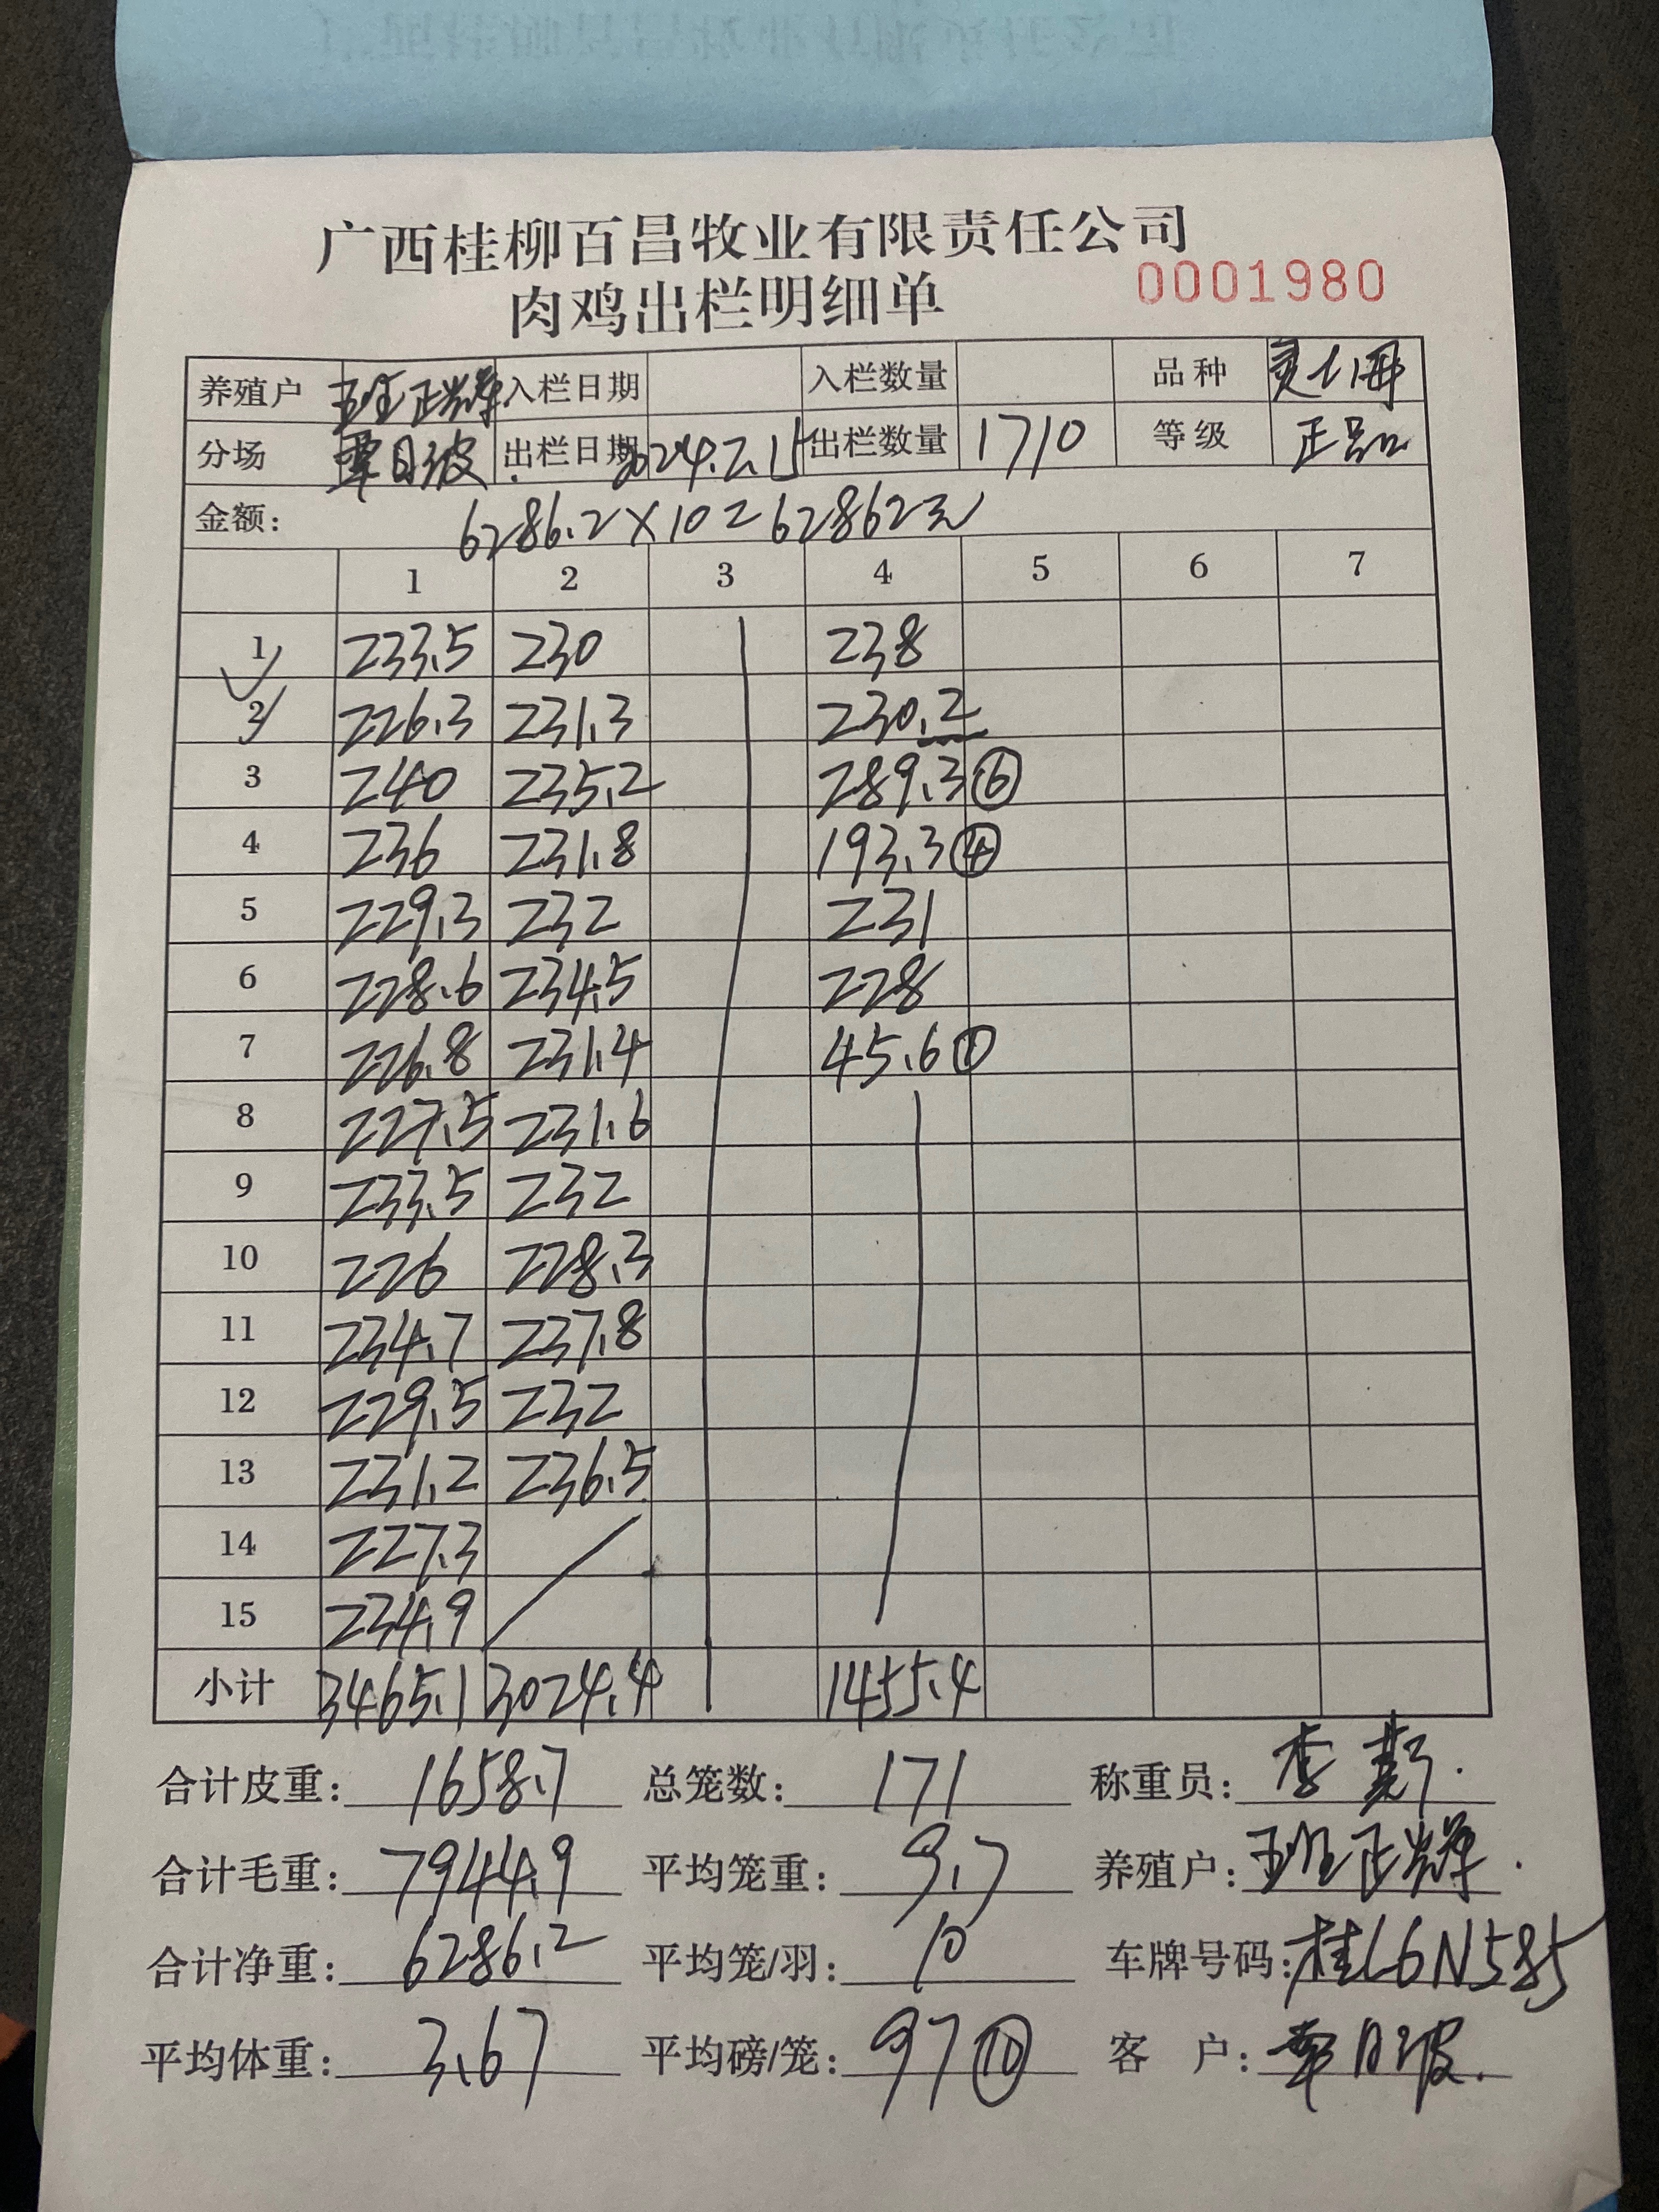 广西桂柳百昌牧业有限责任公司
肉鸡出栏明细单 0001980
养殖户 班正辉 入栏日期 入栏数量 品种
分场 覃日波 出栏日期 2024.2.15 出栏数量 1710 等级 正品
金额: 6286.2×10=62862元
1 2 3 4 5 6 7
1 233.5 230 238
2 226.3 231.3 230.2
3 240 235.2 289.3 ⑥
4 236 231.8 193.3 ④
5 229.3 232 231
6 228.6 234.5 228
7 226.8 231.4 45.6 ①
8 227.5 231.6
9 233.5 232
10 226 228.3
11 234.7 237.8
12 229.5 232
13 231.2 236.5
14 227.3
15 234.9
小计 3465.1 3024.4 1455.4
合计皮重: 1658.7 总笼数: 171 称重员: 李
合计毛重: 7944.9 平均笼重: 9.7 养殖户: 班正辉.
合计净重: 6286.2 平均笼/羽: 10 车牌号码: 桂L6N585
平均体重: 3.67 平均磅/笼: 97 ⑩ 客 户: 覃日波.